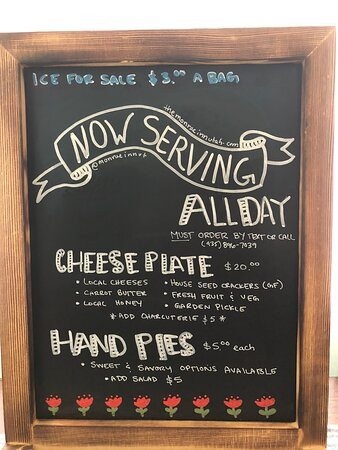 ICE FOR SALE $3.00 A BAG
themonroeinnutah.com
NOW SERVING
@monroeinnut
ALL DAY
MUST ORDER BY TEXT OR CALL
(435) 896-7039
CHEESE PLATE $20.00
• LOCAL CHEESES • HOUSE SEED CRACKERS (GF)
• CARROT BUTTER • FRESH FRUIT & VEG
• LOCAL HONEY • GARDEN PICKLE
* ADD CHARCUTERIE $5 *
HAND PIES $5.00 each
• SWEET & SAVORY OPTIONS AVAILABLE
• ADD SALAD $5